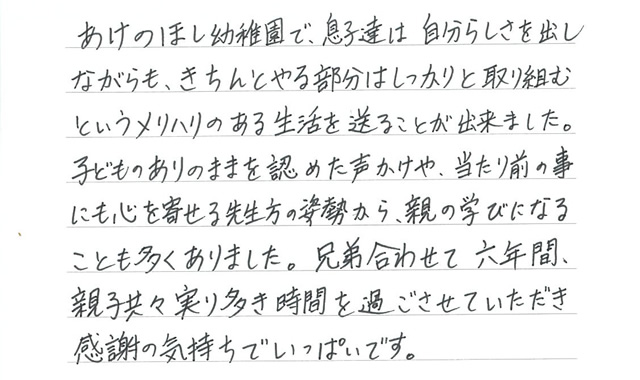 あけのほし幼稚園で、息子達は 自分らしさを出し
ながらも、きちんとやる部分はしっかりと取り組む
というメリハリのある生活を送ることが出来ました。
子どものありのままを認めた声かけや、当たり前の事
にも心を寄せる先生方の姿勢から、親の学びになる
ことも多くありました。兄弟合わせて 六年間、
親子共々実り多き時間を過ごさせていただき
感謝の気持ちでいっぱいです。